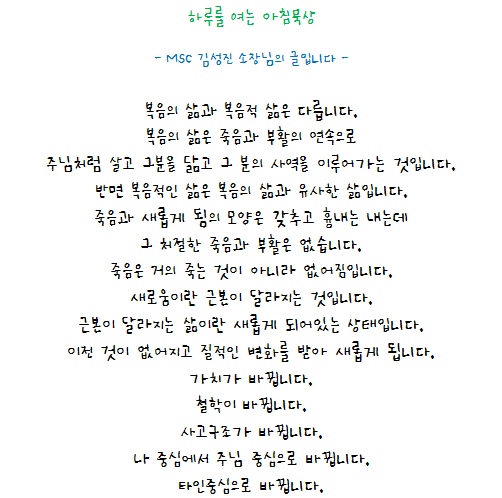 하루를 여는 아침묵상
- MSC 김성진 소장님의 글입니다 -
복음의 삶과 복음적 삶은 다릅니다.
복음의 삶은 죽음과 부활의 연속으로
주님처럼 살고 그분을 닮고 그 분의 사역을 이루어가는 것입니다.
반면 복음적인 삶은 복음의 삶과 유사한 삶입니다.
죽음과 새롭게 됨의 모양은 갖추고 흉내는 내는데
그 처절한 죽음과 부활은 없습니다.
죽음은 거의 죽는 것이 아니라 없어짐입니다.
새로움이란 근본이 달라지는 것입니다.
근본이 달라지는 삶이란 새롭게 되어있는 상태입니다.
이전 것이 없어지고 질적인 변화를 받아 새롭게 됩니다.
가치가 바뀝니다.
철학이 바뀝니다.
사고구조가 바뀝니다.
나 중심에서 주님 중심으로 바뀝니다.
타인중심으로 바뀝니다.